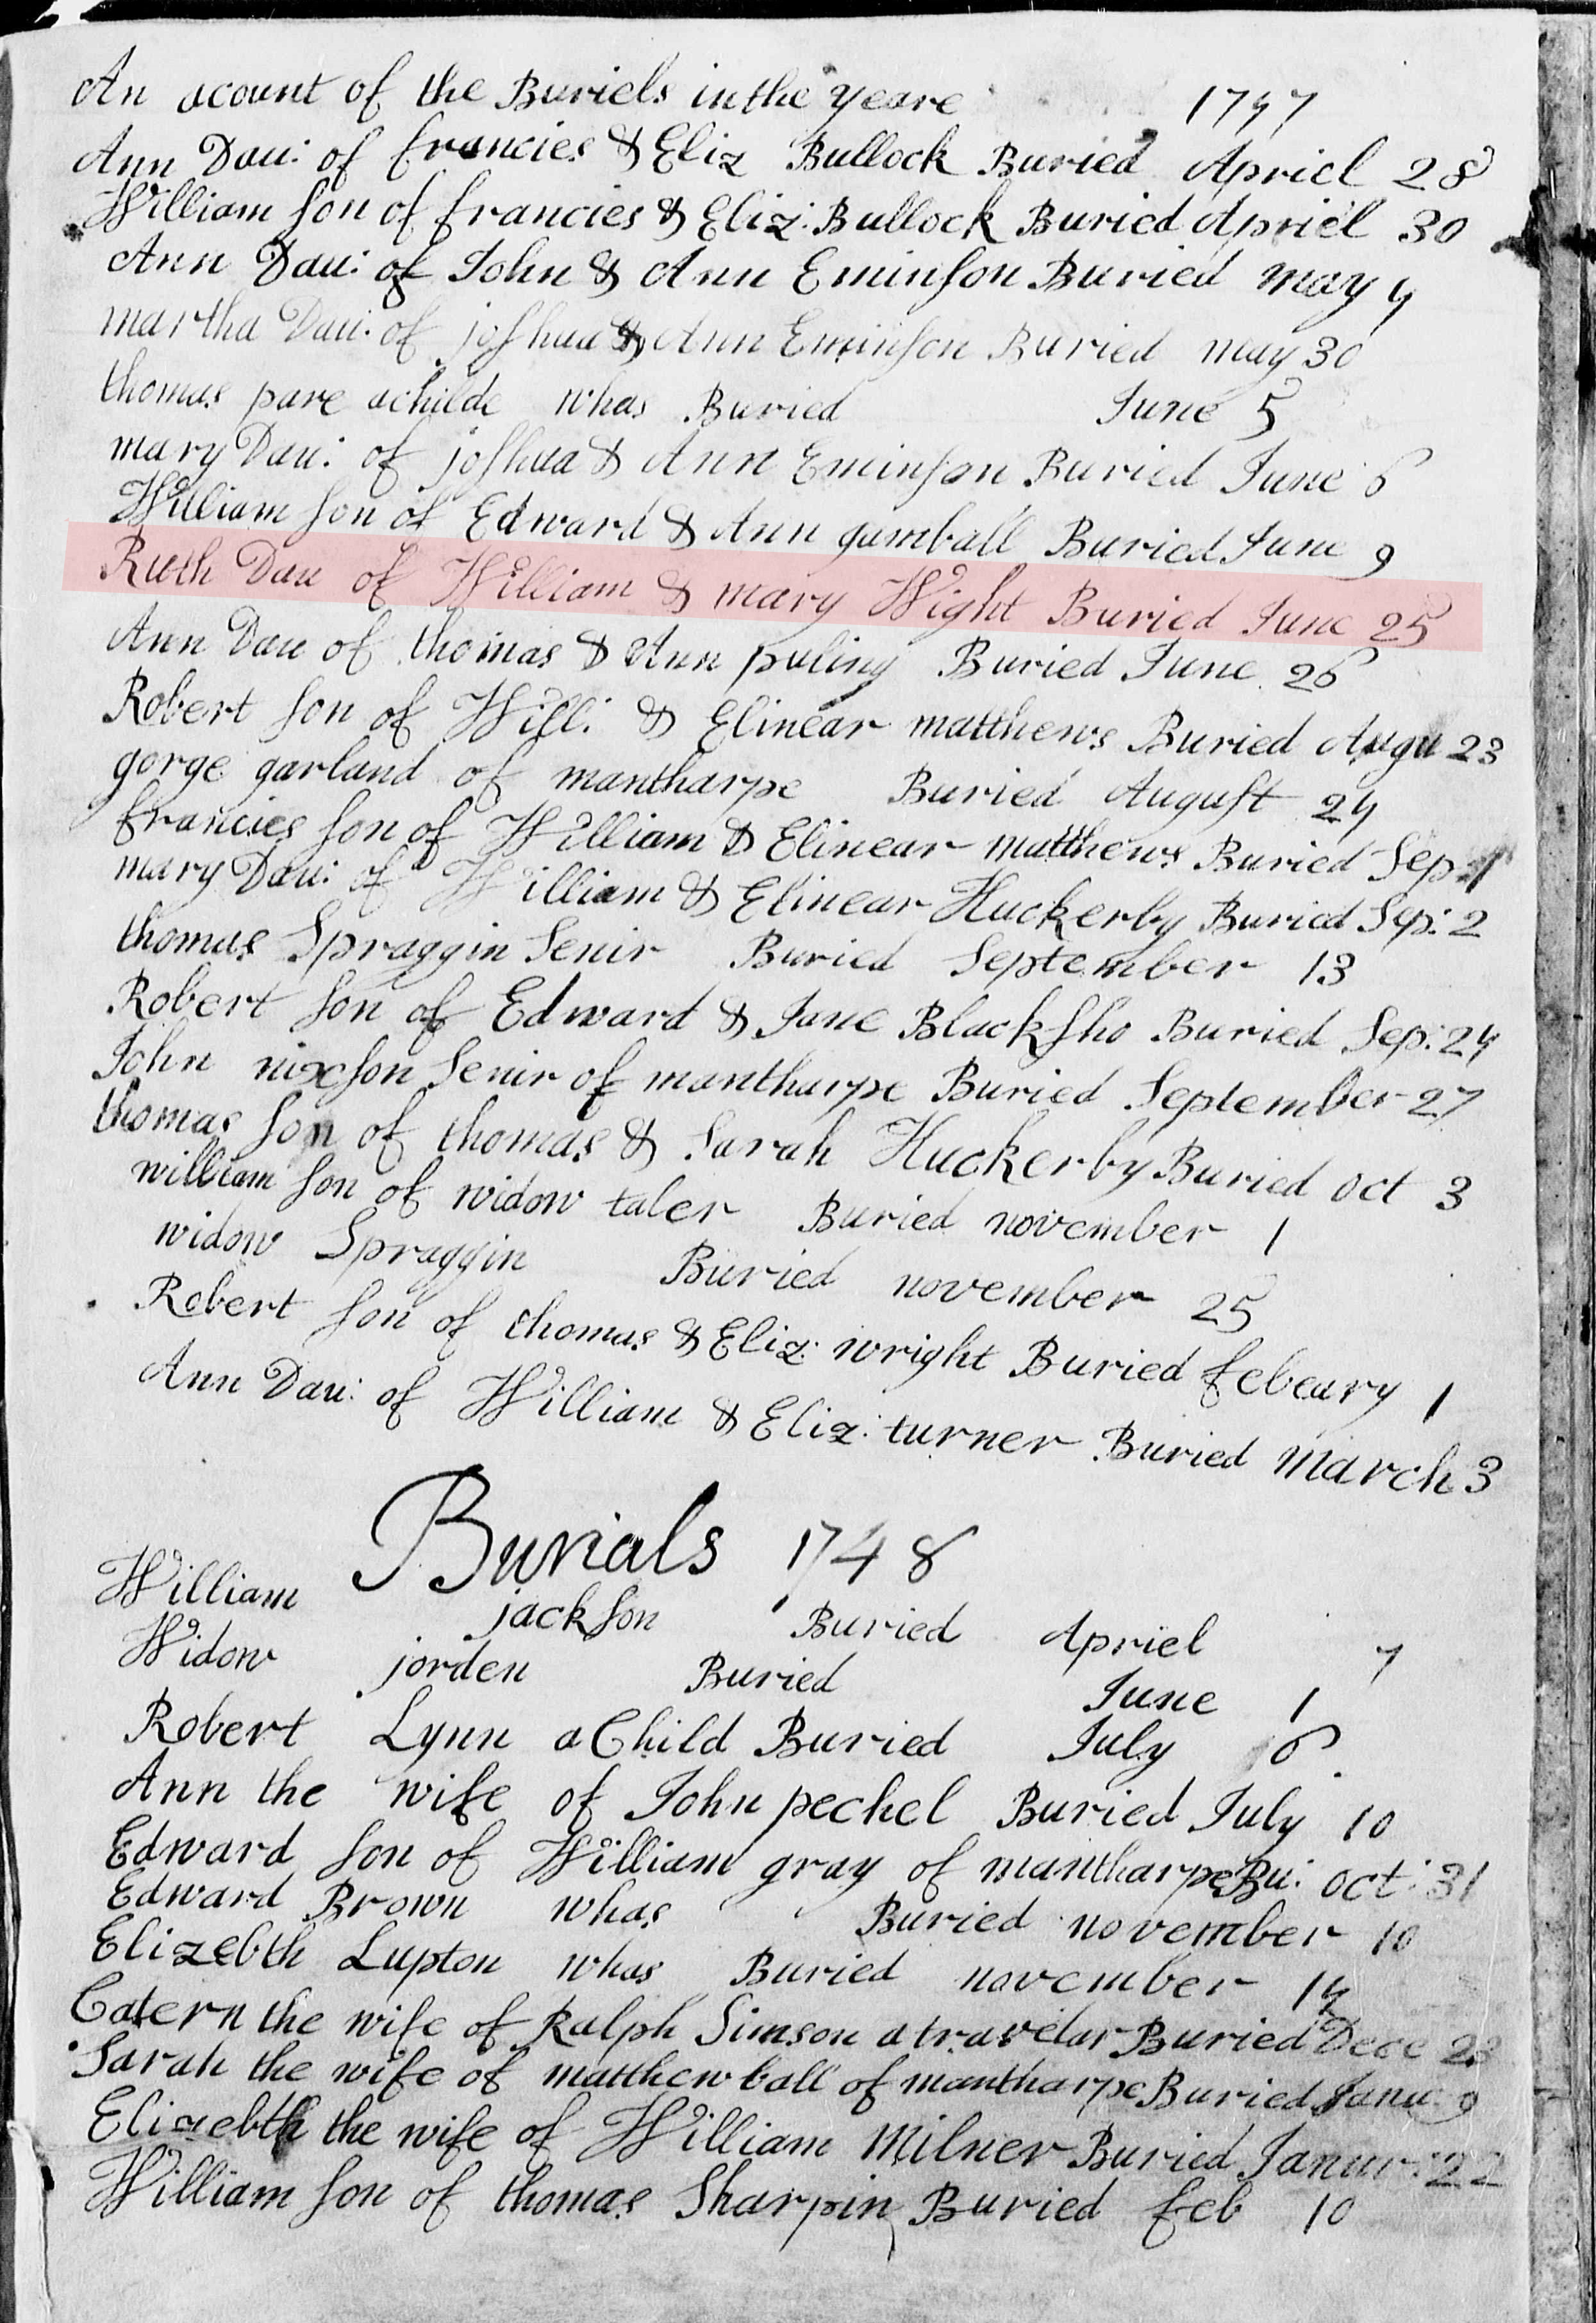 An acount of the Buriels in the yeare 1747
Ann Dau: of francies & Eliz Bullock Buried Apriel 28
William son of francies & Eliz: Bullock Buried Apriel 30
Ann Dau: of John & Ann Eminson Buried may 4
martha Dau: of joshua & Ann Eminson Buried may 30
thomas pare a childe whas Buried June 5
mary Dau: of joshua & Ann Eminson Buried June 6
William son of Edward & Ann gumball Buried June 9
Ruth Dau of William & mary Wight Buried June 25
Ann Dau of thomas & Ann puling Buried June 26
Robert son of Will: & Elinear matthews Buried Augu 23
gorge garland of mantharpe Buried August 24
francies son of William & Elinear matthews Buried Sep: 1
mary Dau: of William & Elinear Huckerby Buried Sep: 2
thomas Spraggin Senir Buried September 13
Robert son of Edward & Jane Blacksho Buried Sep: 24
John nixson Senir of mantharpe Buried September 27
thomas son of thomas & Sarah Huckerby Buried oct 3
william son of widow taler Buried november 1
widow Spraggin Buried november 25
Robert son of thomas & Eliz: wright Buried febeary 1
Ann Dau: of William & Eliz: turner Buried March 3
Burials 1748
William jackson Buried Apriel 7
Widow jorden Buried June 1
Robert Lynn a Child Buried July 6
Ann the wife of John pechel Buried July 10
Edward son of William gray of mantharpe Bu: oct: 31
Edward Brown whas Buried november 10
Elizebth Lupton whas Buried november 14
Catern the wife of Ralph Simson a travelar Buried Dece 23
Sarah the wife of matthew ball of mantharpe Buried Janu 9
Elizebth the wife of William Milner Buried Janur: 22
William son of thomas Sharpin Buried feb 10